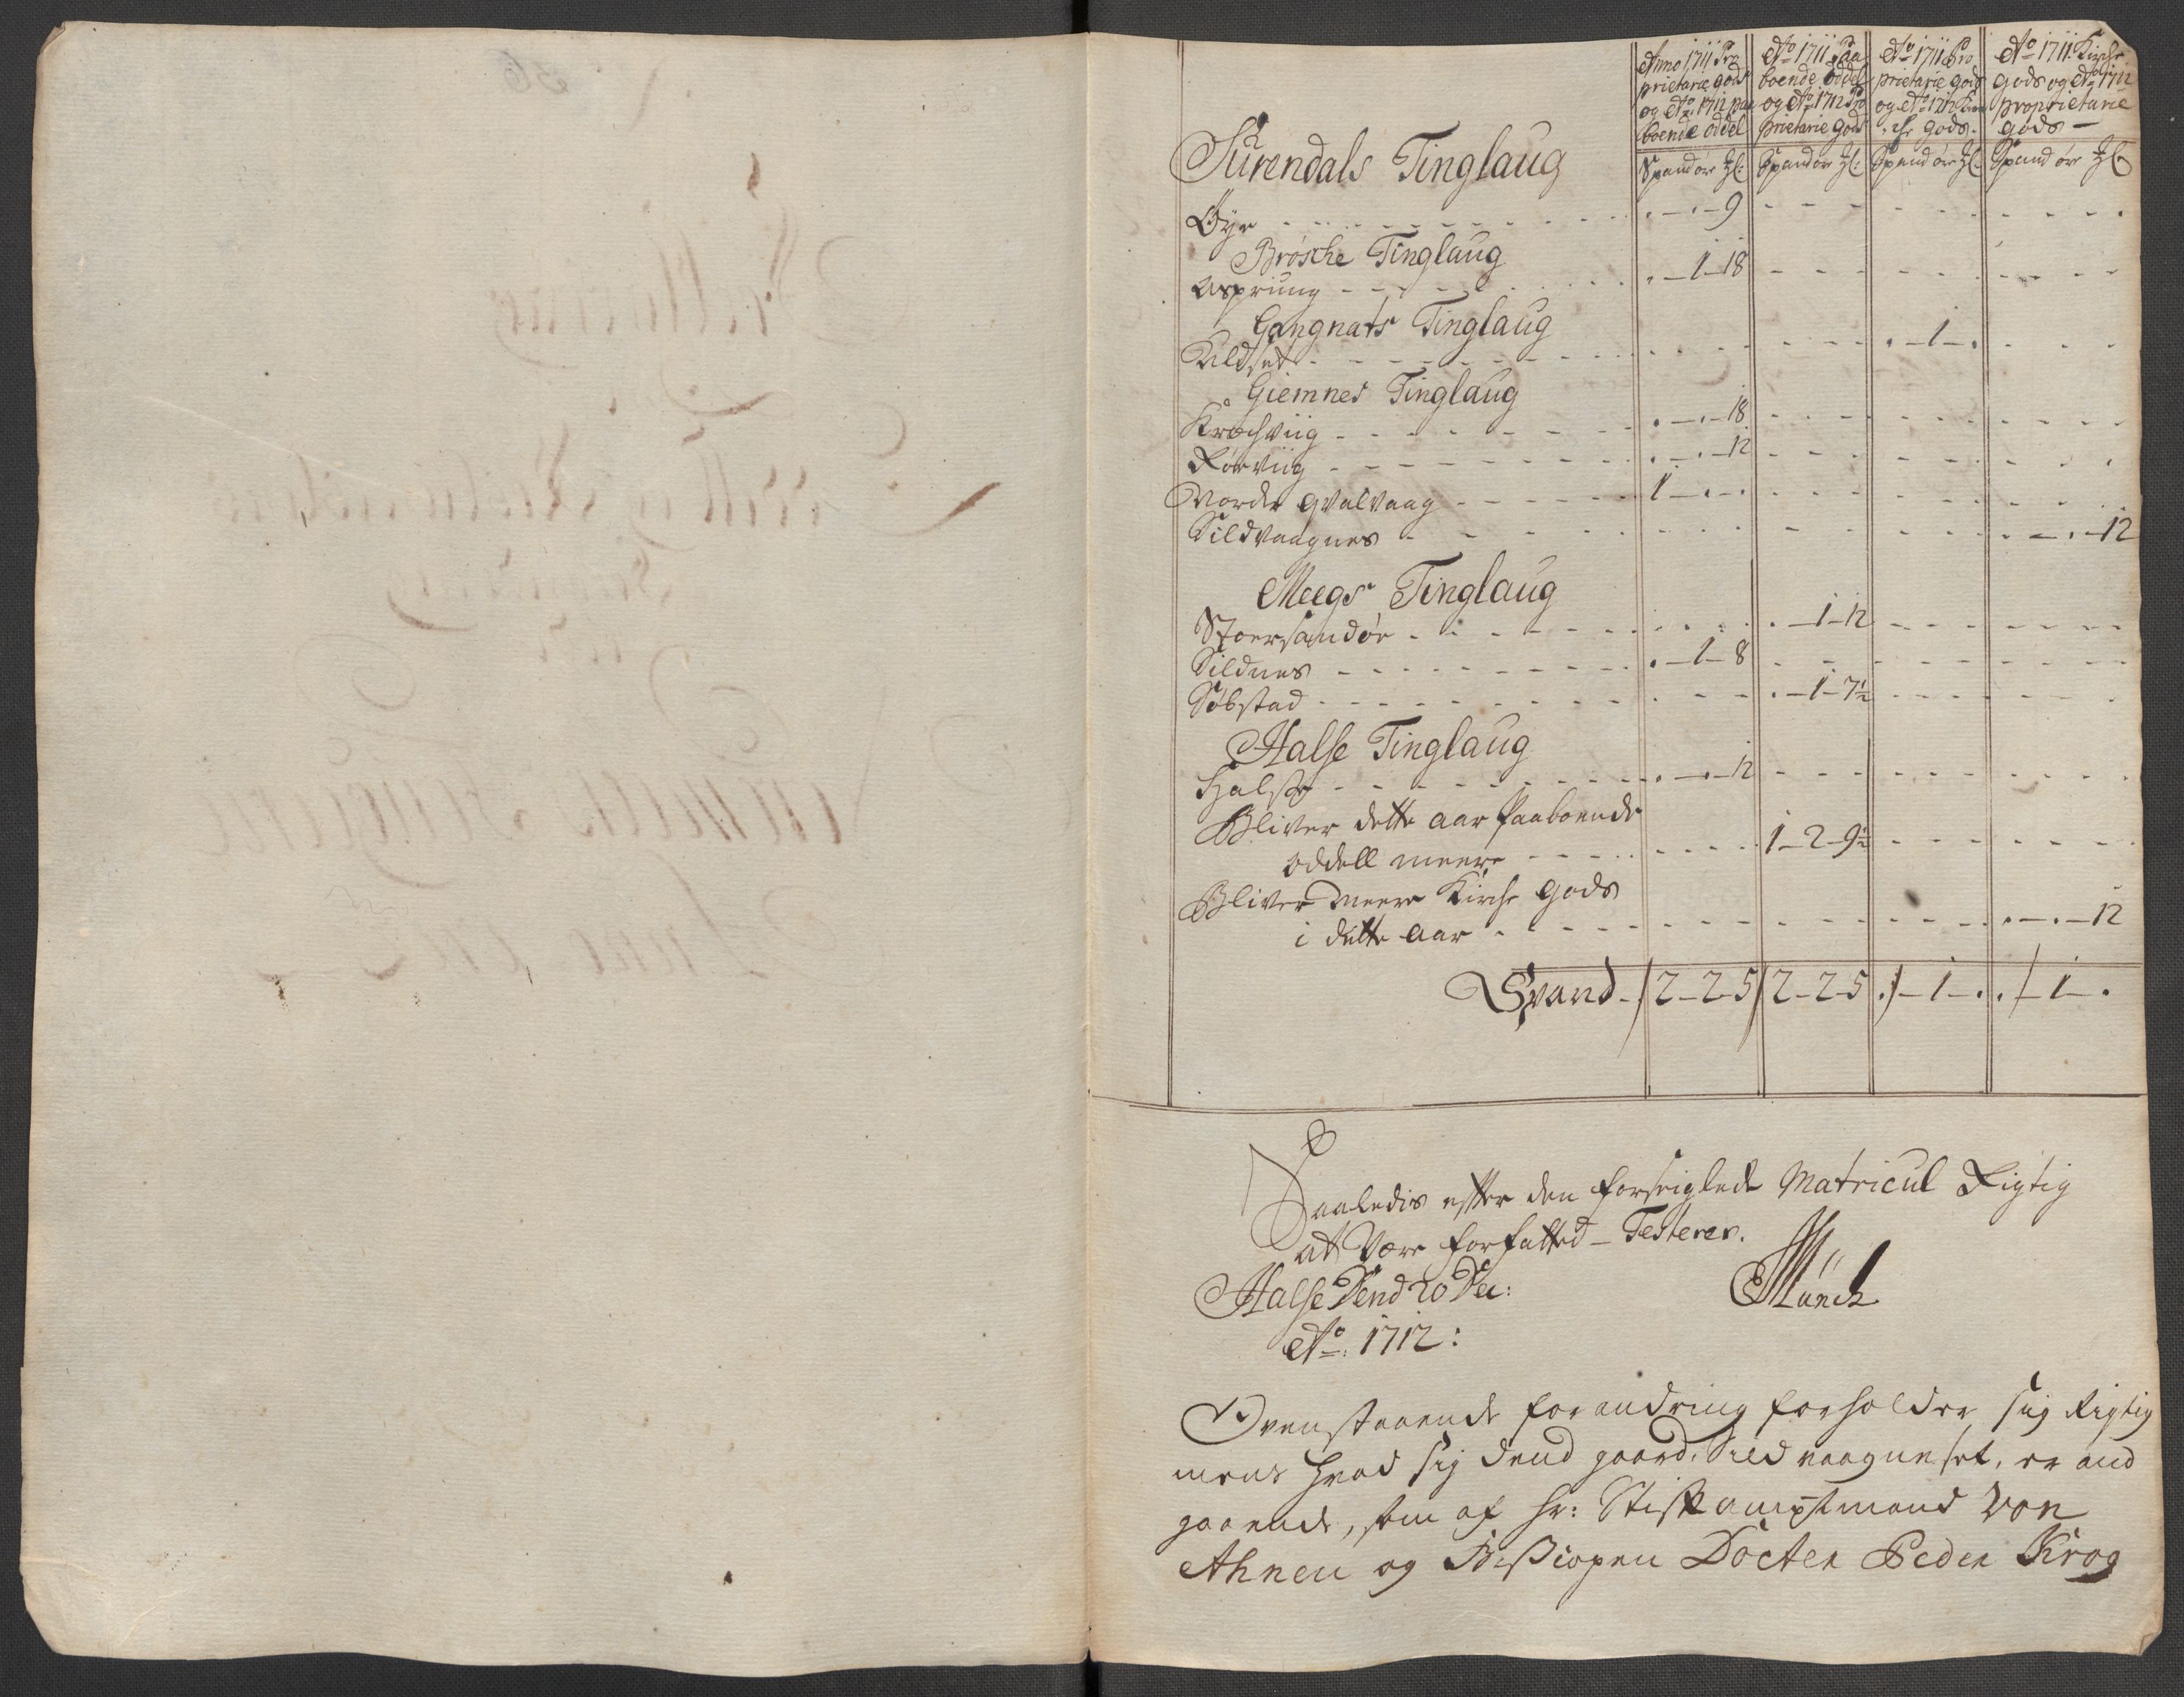 Anno 1711 Pro
prietarie gods
og Ao 1712 paa
boende oddel
Ao 1711 Paa
boende oddel
og Ao 1712 Pro
prietarie gods
Ao 1711 Pro
prietarie gods
og Ao 1712 Kir
che gods.
Ao 1711 Kirche
gods og Ao 1712
proprietarie
gods –
Surendals Tinglaug
Spand ør Spand ør Spand ør Spand ør
Øye - - - . – . – 9
Brøsche Tinglaug
Asprung - - - . – 1 – 18
Gangnats Tinglaug
Kildset - - - . – 1 – .
Giemnes Tinglaug
Krochviig - - - . – . – 18
Rørviig - - - . – . – 12
Nordre qvalvaag - - - 1 – . – .
Sildvaagnes - - - . – . – 12
Meegs Tinglaug
Stoersandør - - - . – 1 – 12
Sildnes - - - . – 1 – 8
Søbstad - - - . – 1 – 7½
Halse Tinglaug
Halse - - - . – . – 12
Bliver dette aar Paaboende
oddell meere - - - 1 – 2 – 9½
Bliver meere Kirche gods
i dette aar - - - . – . – 12
Spand – / 2 – 2 – 5 / 2 – 2 – 5 . / – 1 – . . / – 1 – .
Saaledis efter den forseiglede Matricul Rigtig
at være forfatted – Testerer.
Halse Dend 20 Dec:
Ao: 1712:
Münch
Ovenstaaende forandring forholder sig Rigtig
mens hvad sig dend gaard, Sildvaagneset, er and
gaaende, som af hr: Stiftamptmand Von
Ahnen og Bißiopen Docter Peder Krog